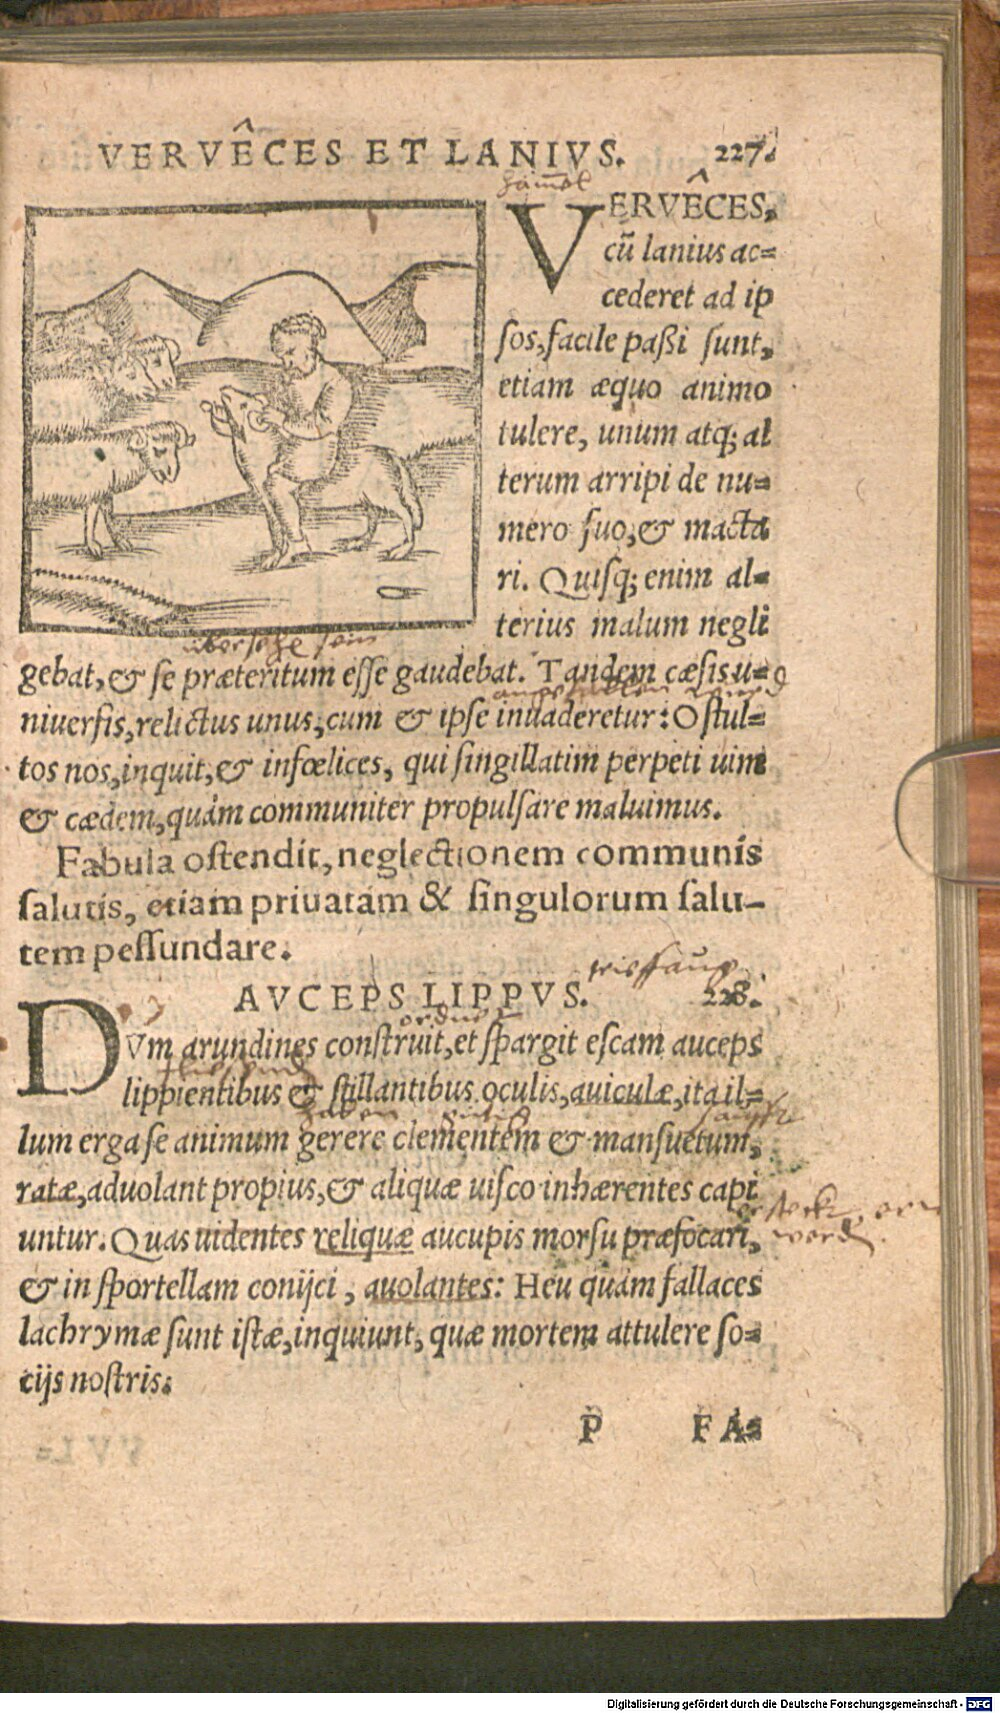 VERVÊCES ET LANIVS. 227.
hamel
VERVÊCES,
cũ lanius ac=
cederet ad ip
sos, facile paßi sunt,
etiam æquo animo
tulere, unum atq; al
terum arripi de nu=
mero suo, & macta
ri. Quisq; enim al=
terius malum negli
gebat, & se præteritum esse gaudebat. Tandem cæsis u=
niuersis, relictus unus, cum & ipse inuaderetur: O stul=
tos nos, inquit, & infœlices, qui singillatim perpeti uim
& cædem, quàm communiter propulsare maluimus.
Fabula ostendit, neglectionem communis
salutis, etiam priuatam & singulorum salu-
tem pessundare.
AVCEPS LIPPVS. 228.
DVm arundines construit, et spargit escam auceps
lippientibus & stillantibus oculis, auiculæ, ita il=
lum erga se animum gerere clementem & mansuetum,
ratæ, aduolant propius, & aliquæ uisco inhærentes capi
untur. Quas uidentes reliquæ aucupis morsu præfocari,
& in sportellam conijci, auolantes: Heu quàm fallaces
lachrymæ sunt istæ, inquiunt, quæ mortem attulere so=
cijs nostris.
P FA=
Digitalisierung gefördert durch die Deutsche Forschungsgemeinschaft - DFG